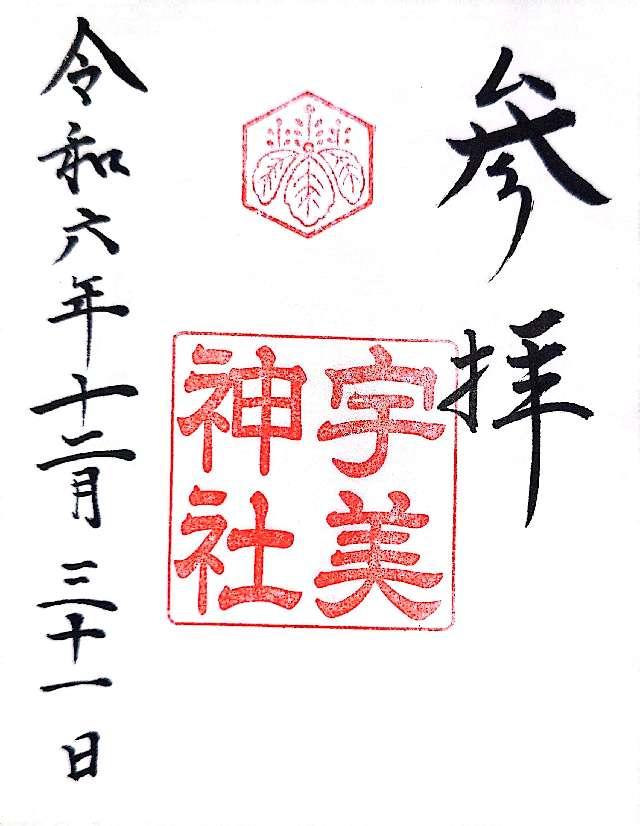 参拝
宇美
神社
令和六年十二月三十一日